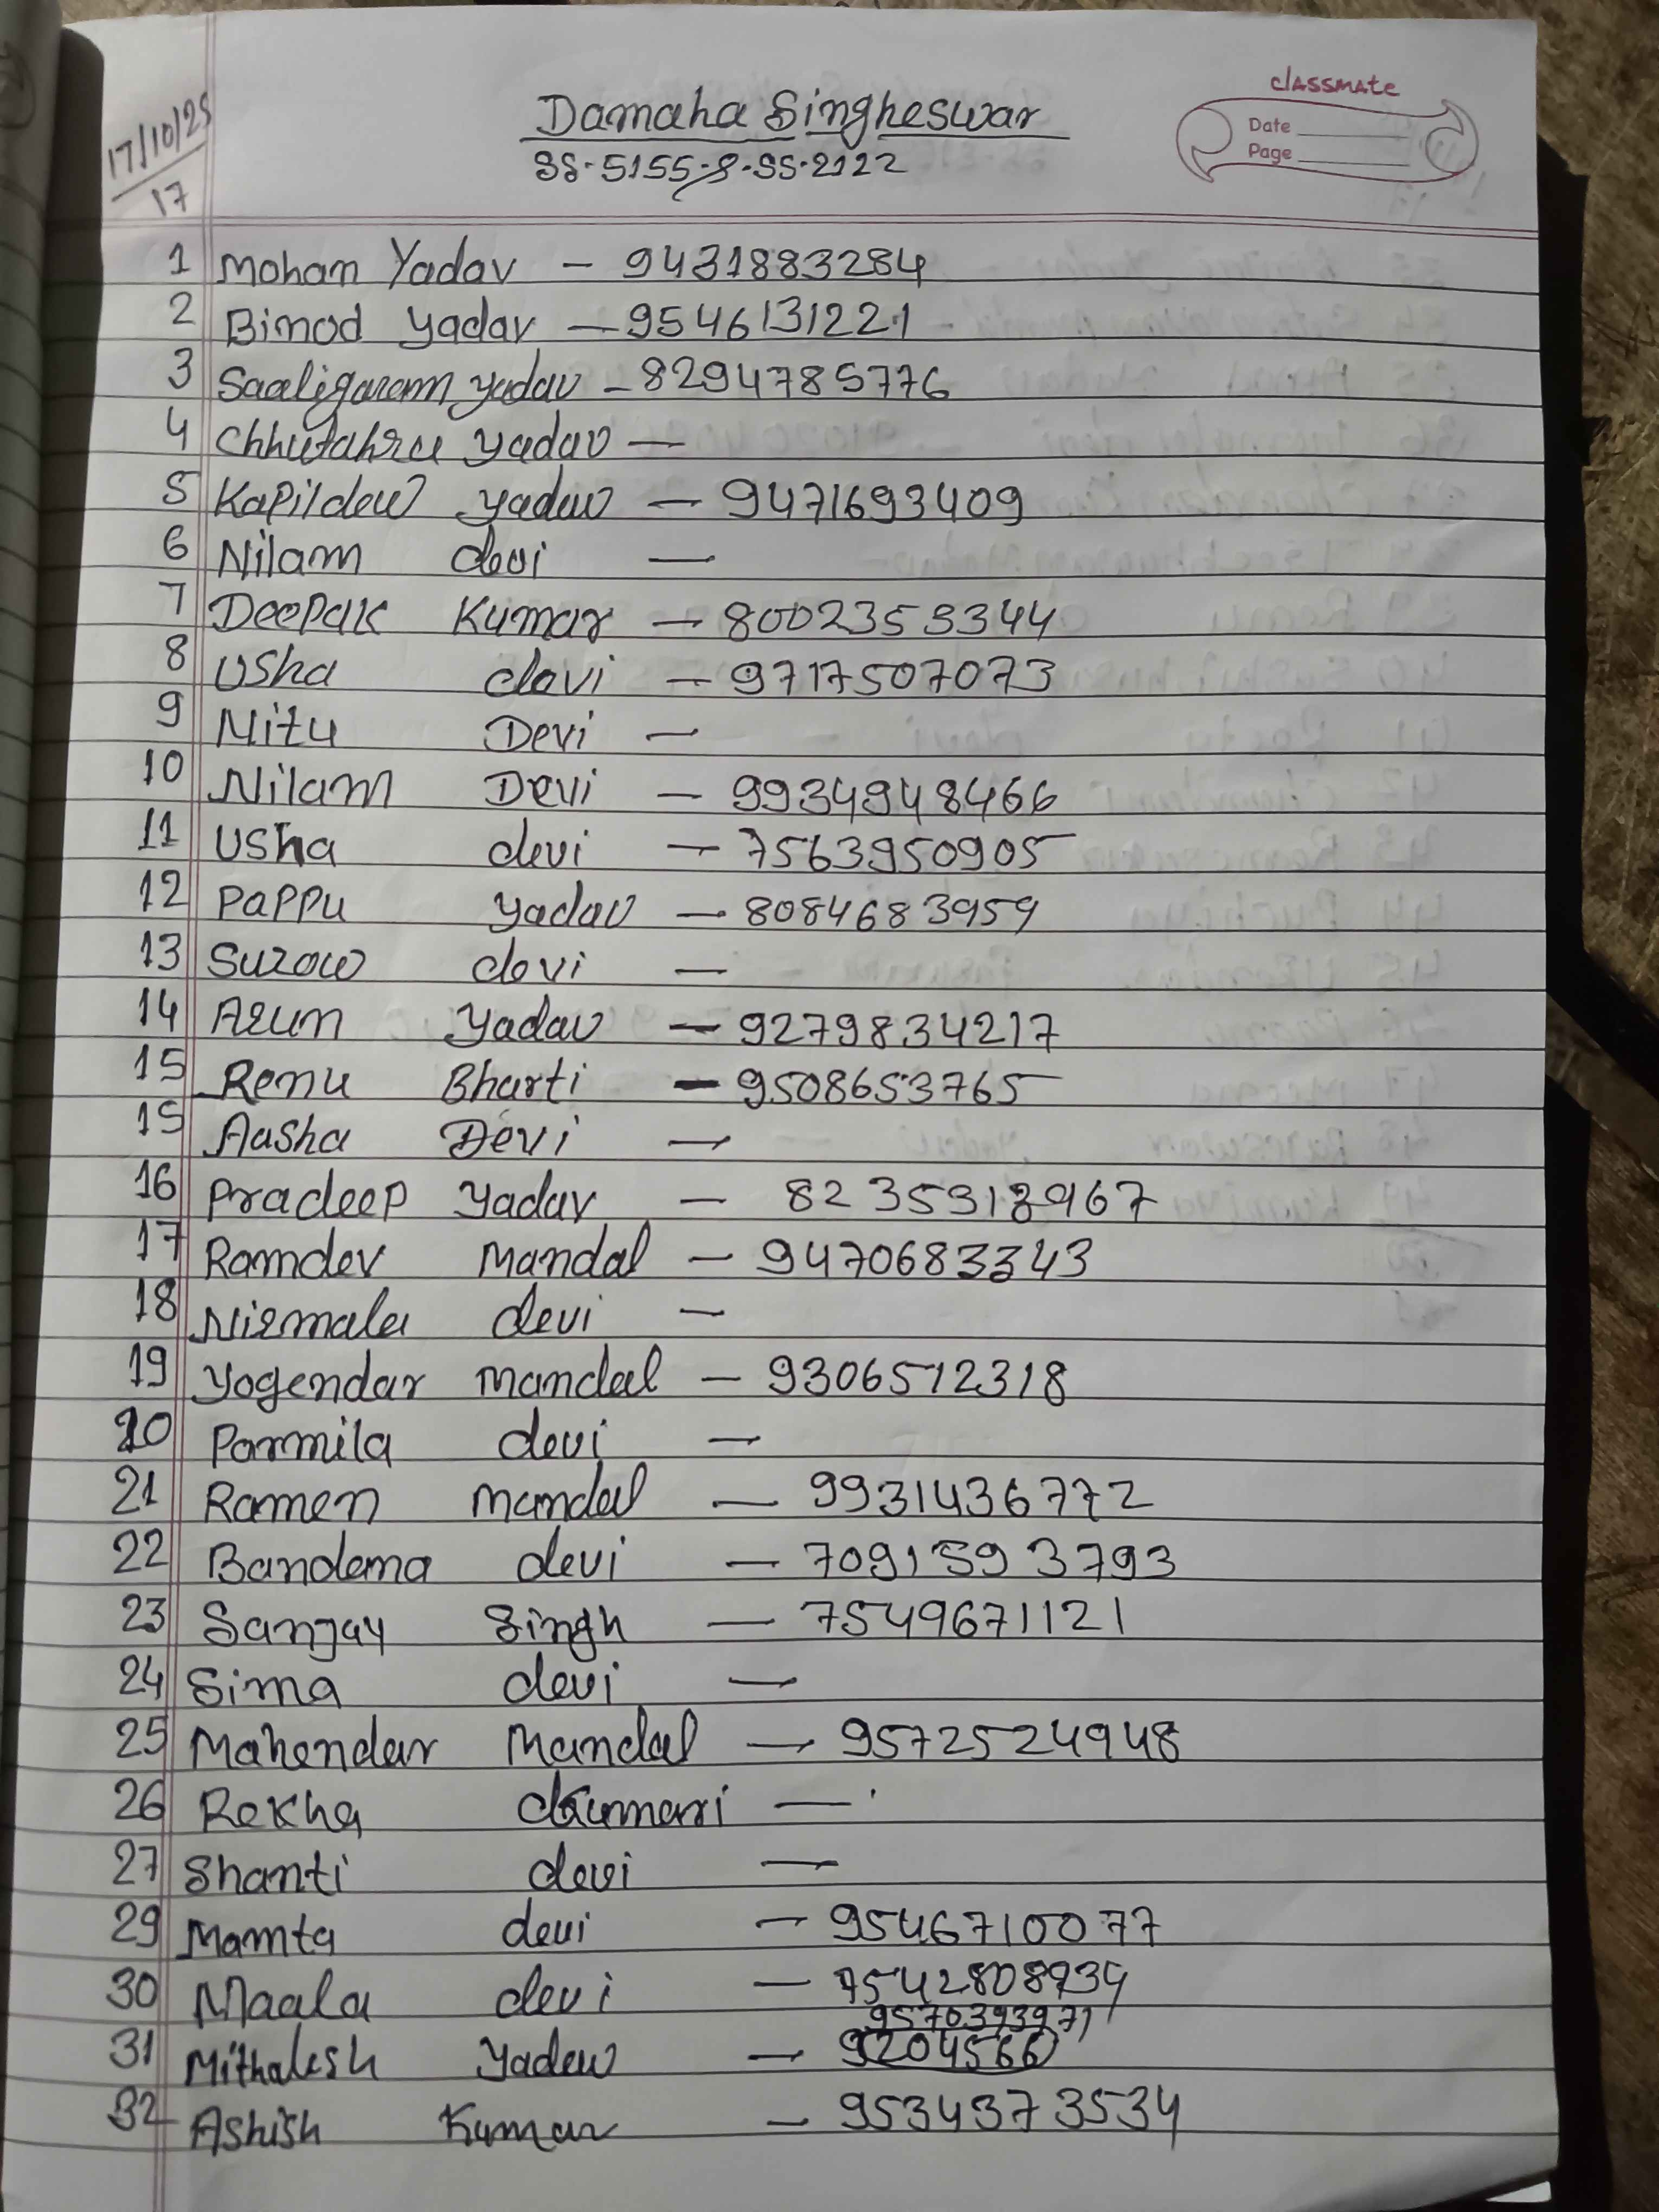 classmate
Date
Page
17/10/25
17
Damaha Singheswar
SS-5155-8-SS-2122
1 Mohan Yadav - 9431883284
2 Binod yadav - 9546131221
3 Saaligaram yadav - 8294785776
4 Chhutahru yadav -
5 Kapildew yadav - 9471693409
6 Nilam devi -
7 Deepak Kumar - 8002353344
8 Usha devi - 9717507073
9 Nitu Devi -
10 Nilam Devi - 9934948466
11 Usha devi - 7563950905
12 Pappu yadav - 8084683959
13 Surow devi -
14 Arun yadav - 9279834217
15 Renu Bharti - 9508653765
15 Aasha Devi -
16 Pradeep yadav - 8235313967
17 Ramdev Mandal - 9470683343
18 Nirmala devi -
19 Yogendar Mandal - 9306512318
20 Parmila devi -
21 Ramen Mandal - 9931436772
22 Bandana devi - 7091593793
23 Sanjay Singh - 7549671121
24 Sima devi -
25 Mahendar Mandal - 9572524948
26 Rekha Kumari -
27 Shanti devi -
29 Mamta devi - 9546710077
30 Maala devi -
31 Mithalesh Yadav -
32 Ashish Kumar - 9534373534